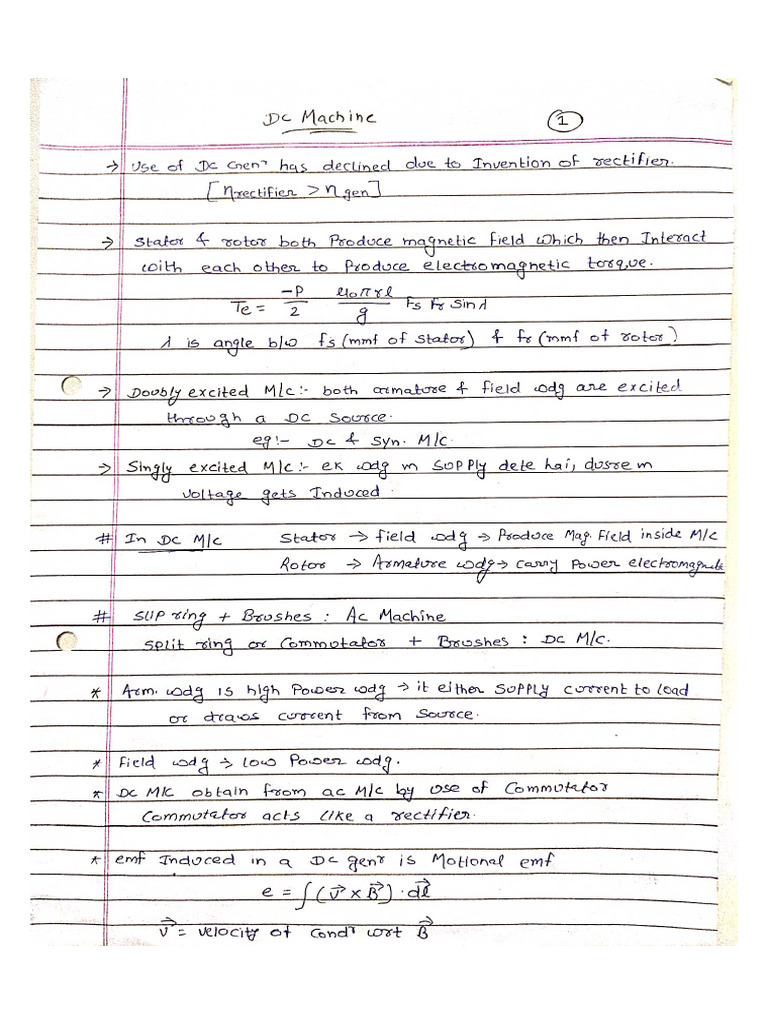 DC Machine 1
→ Use of DC Genr has declined due to Invention of rectifier.
[η rectifier > η gen]
→ Stator & rotor both Produce magnetic field which then Interact
with each other to Produce electromagnetic torque.
Te = -P/2 μ0πrl/g Fs Fr Sin λ
λ is angle b/w fs (mmf of stator) & fr (mmf of rotor)
→ Doubly excited M/c:- both armature & field wdg are excited
through a DC Source.
eg:- DC & Syn. M/C.
→ Singly excited M/c:- ek wdg m SUPPly dete hai, dusre m
voltage gets Induced.
# In DC M/c Stator → field wdg → Produce Mag. Field inside M/C
Rotor → Armature wdg → carry Power electromagnetic
# SLIP ring + Brushes : Ac Machine
Split ring or Commutator + Brushes : DC M/C.
* Arm. wdg is high Power wdg → it either SUPPLY current to load
or draws current from Source.
* field wdg → low Power wdg.
* DC M/C obtain from ac M/C by use of Commutator
Commutator acts like a rectifier.
* emf Induced in a DC genr is Motional emf
e = ∫(v⃗ × B⃗) · dl⃗
v⃗ = velocity of condr wrt B⃗